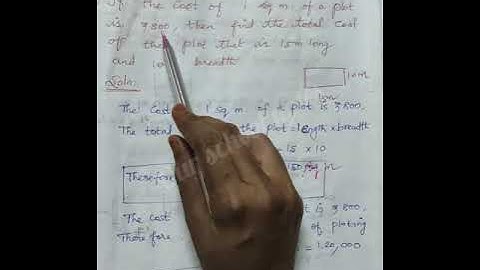 If the cost of 1 sq m. of a plot
is ₹800, then find the total cost
off the plot that is 15m long
and 10 breadth
Soln:
10m
15m
The cost 1 sq m. of a plot is ₹800,
The total the plot = length x breadth
= 15 x 10
Therefore = 150 sq m
The cost is ₹800,
Therefore of ploting
= 1,20,000